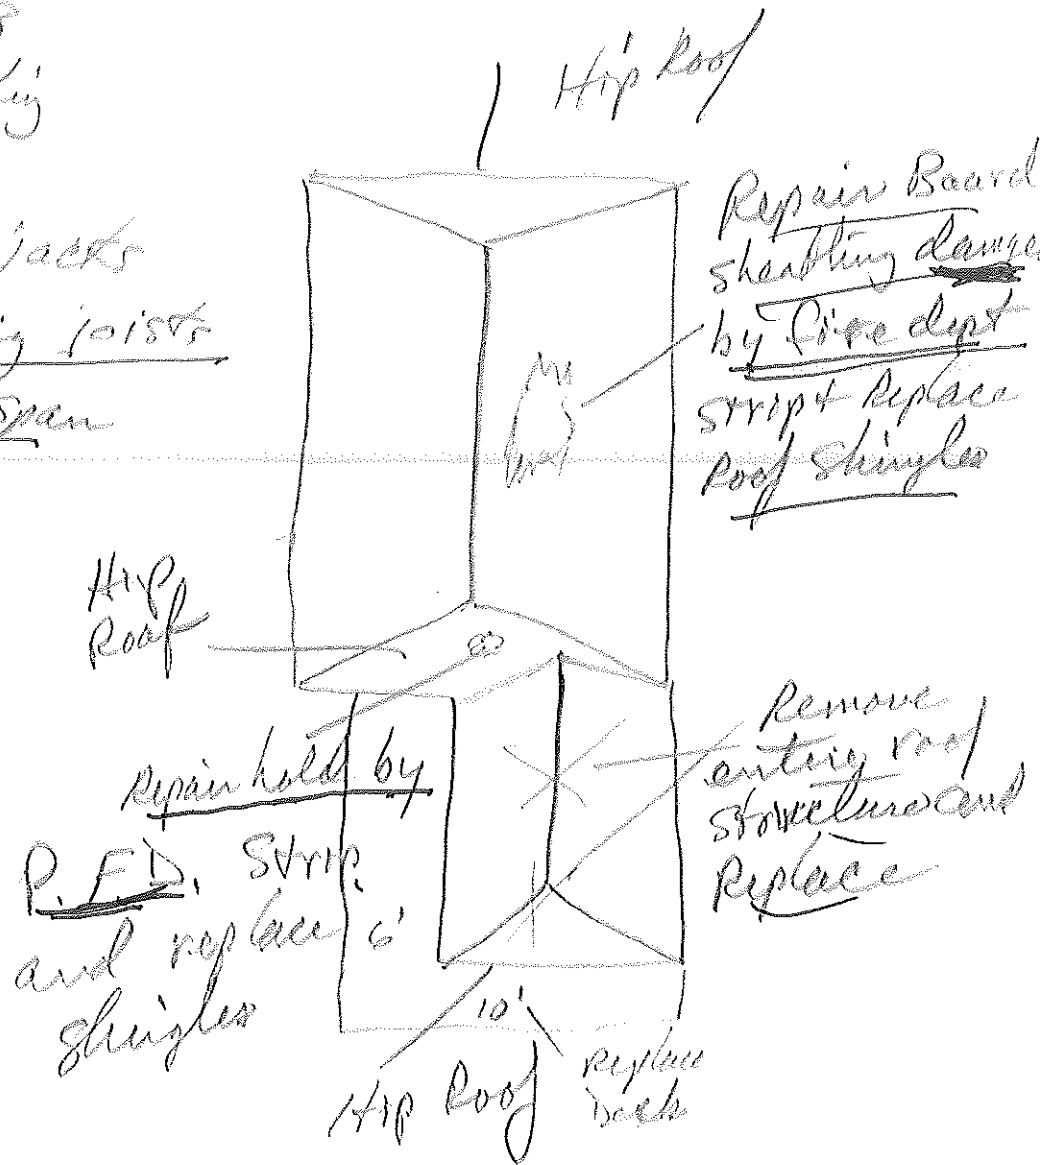 Hip Roof
Repair Board
sheathing damage
by fire dept
strip + Replace
Roof Shingles
Jacks
joists
Span
Hip
Roof
Repair hold by
P.F.D. Strip
and replace
shingles
Remove
entire roof
structure and
Replace
6'
10'
Hip Roof
Replace
Deck